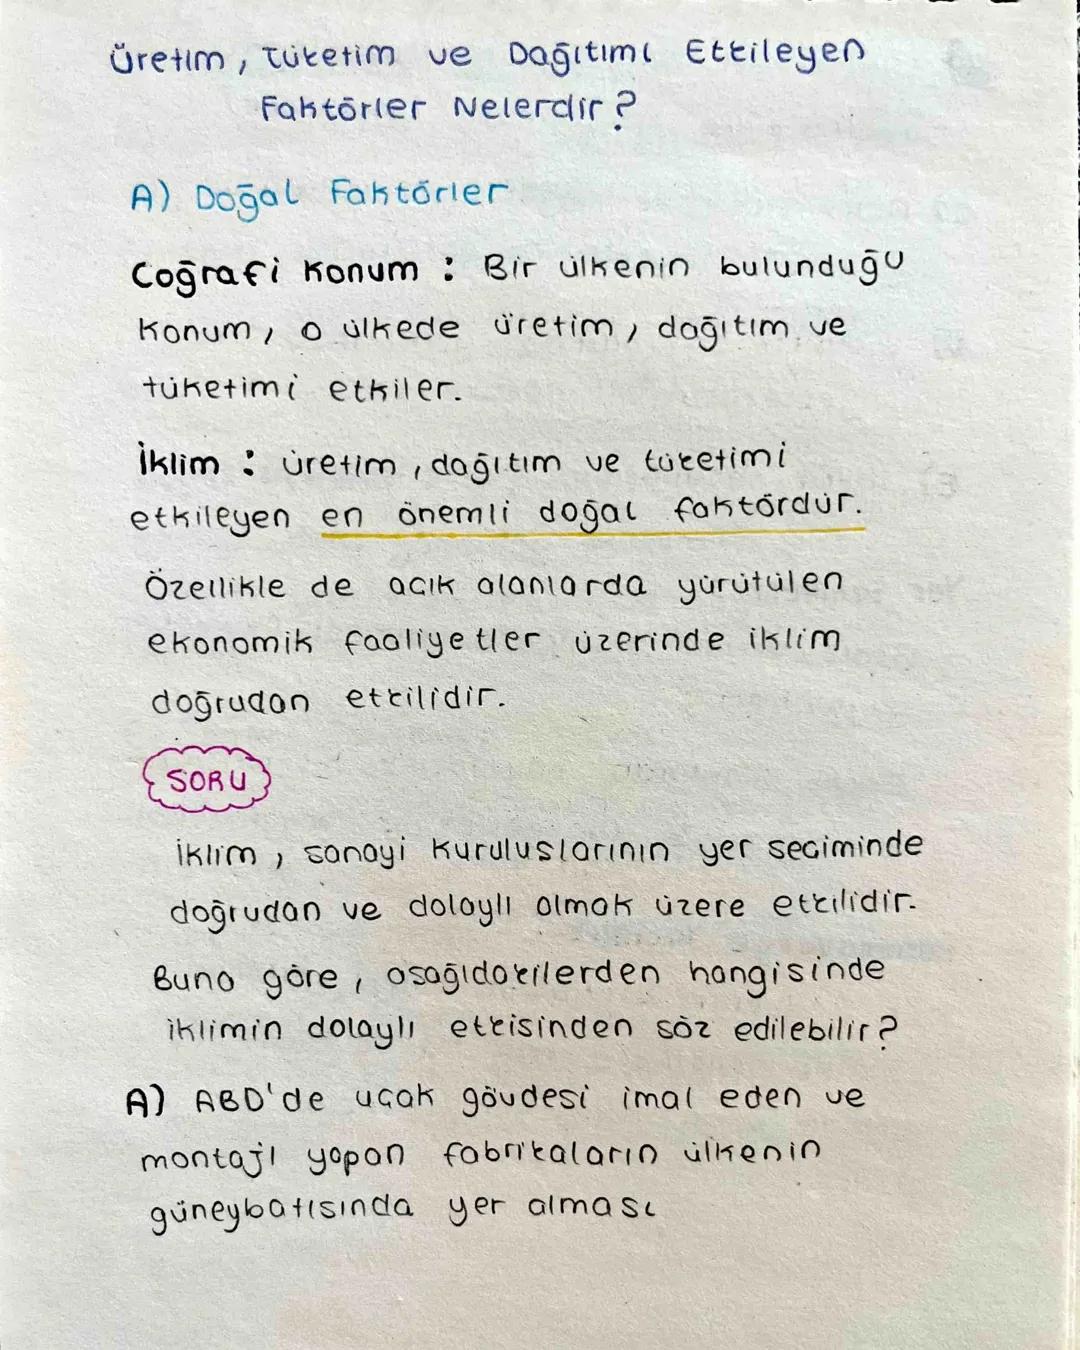 Üretim, Tüketim ve Dağıtımı Etkileyen
Faktörler Nelerdir?
A) Doğal Faktörler
Coğrafi Konum : Bir ülkenin bulunduğu
konum, o ülkede üretim, dağıtım ve
tüketimi etkiler.
İklim : üretim, dağıtım ve tüketimi
etkileyen en önemli doğal faktördür.
Özellikle de açık alanlarda yürütülen
ekonomik faaliyetler üzerinde iklim
doğrudan etkilidir.
SORU
İklim, sanayi kuruluslarının yer seçiminde
doğrudan ve dolaylı olmak üzere etkilidir.
Buna göre, asağıdakilerden hangisinde
iklimin dolaylı etkisinden söz edilebilir?
A) ABD'de uçak gövdesi imal eden ve
montajı yapan fabrikaların ülkenin
güneybatısında yer alması